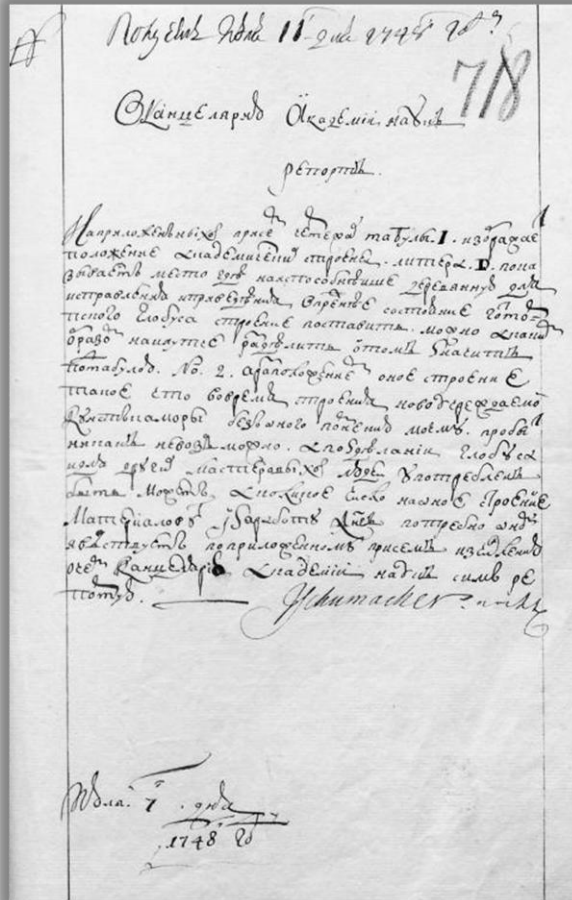 июля 11 дня 1748 году
718
В Канцелярию Академии наукъ
репортъ.
На приложенныхъ при семъ чертежахъ табулы. I. изображае
положение Академическихъ строеней. литера. D. пока
зываетъ место где наиспособнейше деревянную для
исправления и приведения в прежнее состояние Готто
пского Глобуса строение поставить. можно
образо наилутче разделить о томъ значитъ
по табулою. No. 2. а расположение оное строение
такое что во время строения новоучреждаемо
Кунсткаморы безъ оного по мнению моему пробы
никакъ невозможно. а по зделании Глобуса
для других мастеравыхъ людей употребленъ
быть можетъ, а колико на оное строение
Материаловъ и работъ потребно о
явствуетъ по приложенномъ при семъ
оче Канцелярии Академии наукъ симъ ре
портую.
JSchumacher
Июля. 7. дня
1748 го